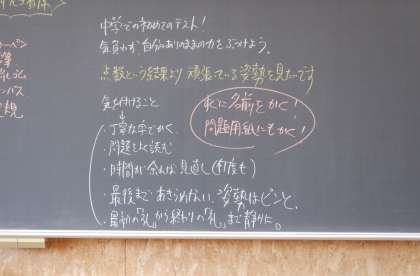 中学で初めてのテスト！
気負わず自分のありのままの力をぶつけよう。
点数という結果より 頑張っている姿勢を見たいです
気を付けること
↓
・丁寧な字でかく
・問題をよく読む
・時間が余れば見直し(何度も)
・最後まであきらめない、姿勢はピンと、
・最初の「礼」から終わりの「礼」まで静かに。
すぐに名前をかく！
問題用紙にもかく！
ーペン
ンパス
定規